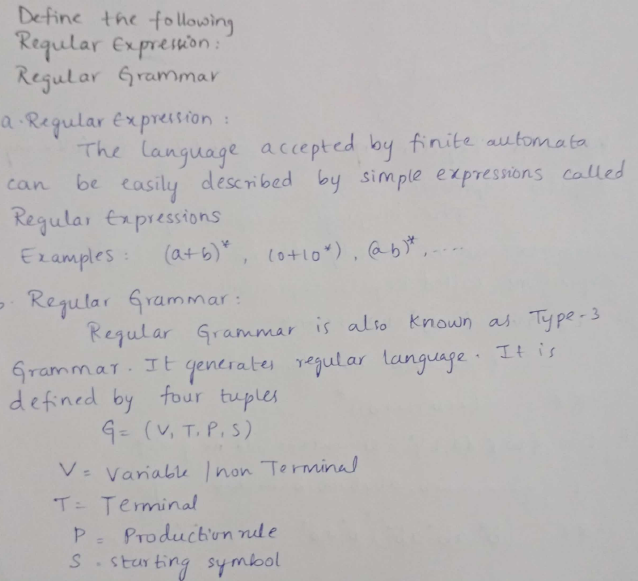 Define the following
Regular Expression:
Regular Grammar
a. Regular Expression :
The language accepted by finite automata
can be easily described by simple expressions called
Regular Expressions
Examples : (a+b)*, (0+10*), (ab)*, ....
Regular Grammar :
Regular Grammar is also known as Type-3
Grammar. It generates regular language. It is
defined by four tuples
G = (V, T, P, S)
V = Variable / non Terminal
T = Terminal
P = Production rule
S - starting symbol